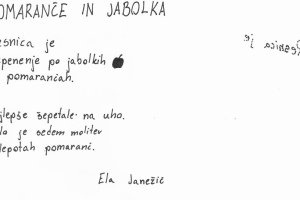 POMARANČE IN JABOLKA
esnica je
penenje po jabolkih
pomarančah.
Resnica je
jlepše šepetale na uho.
lo je sedem molitev
lepotah pomaranč.
Ela Janežič